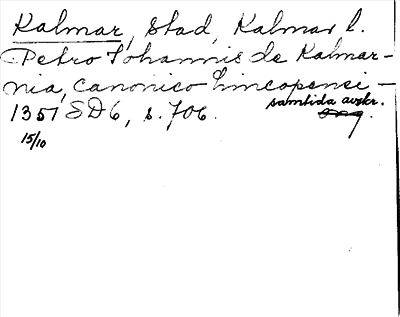 Kalmar, stad, Kalmar l.
Petro Johannis de Kalmar-
nia, canonico Lincopensi -
1351 SD6, s. 706.
samtida avskr.
orig.
15/10